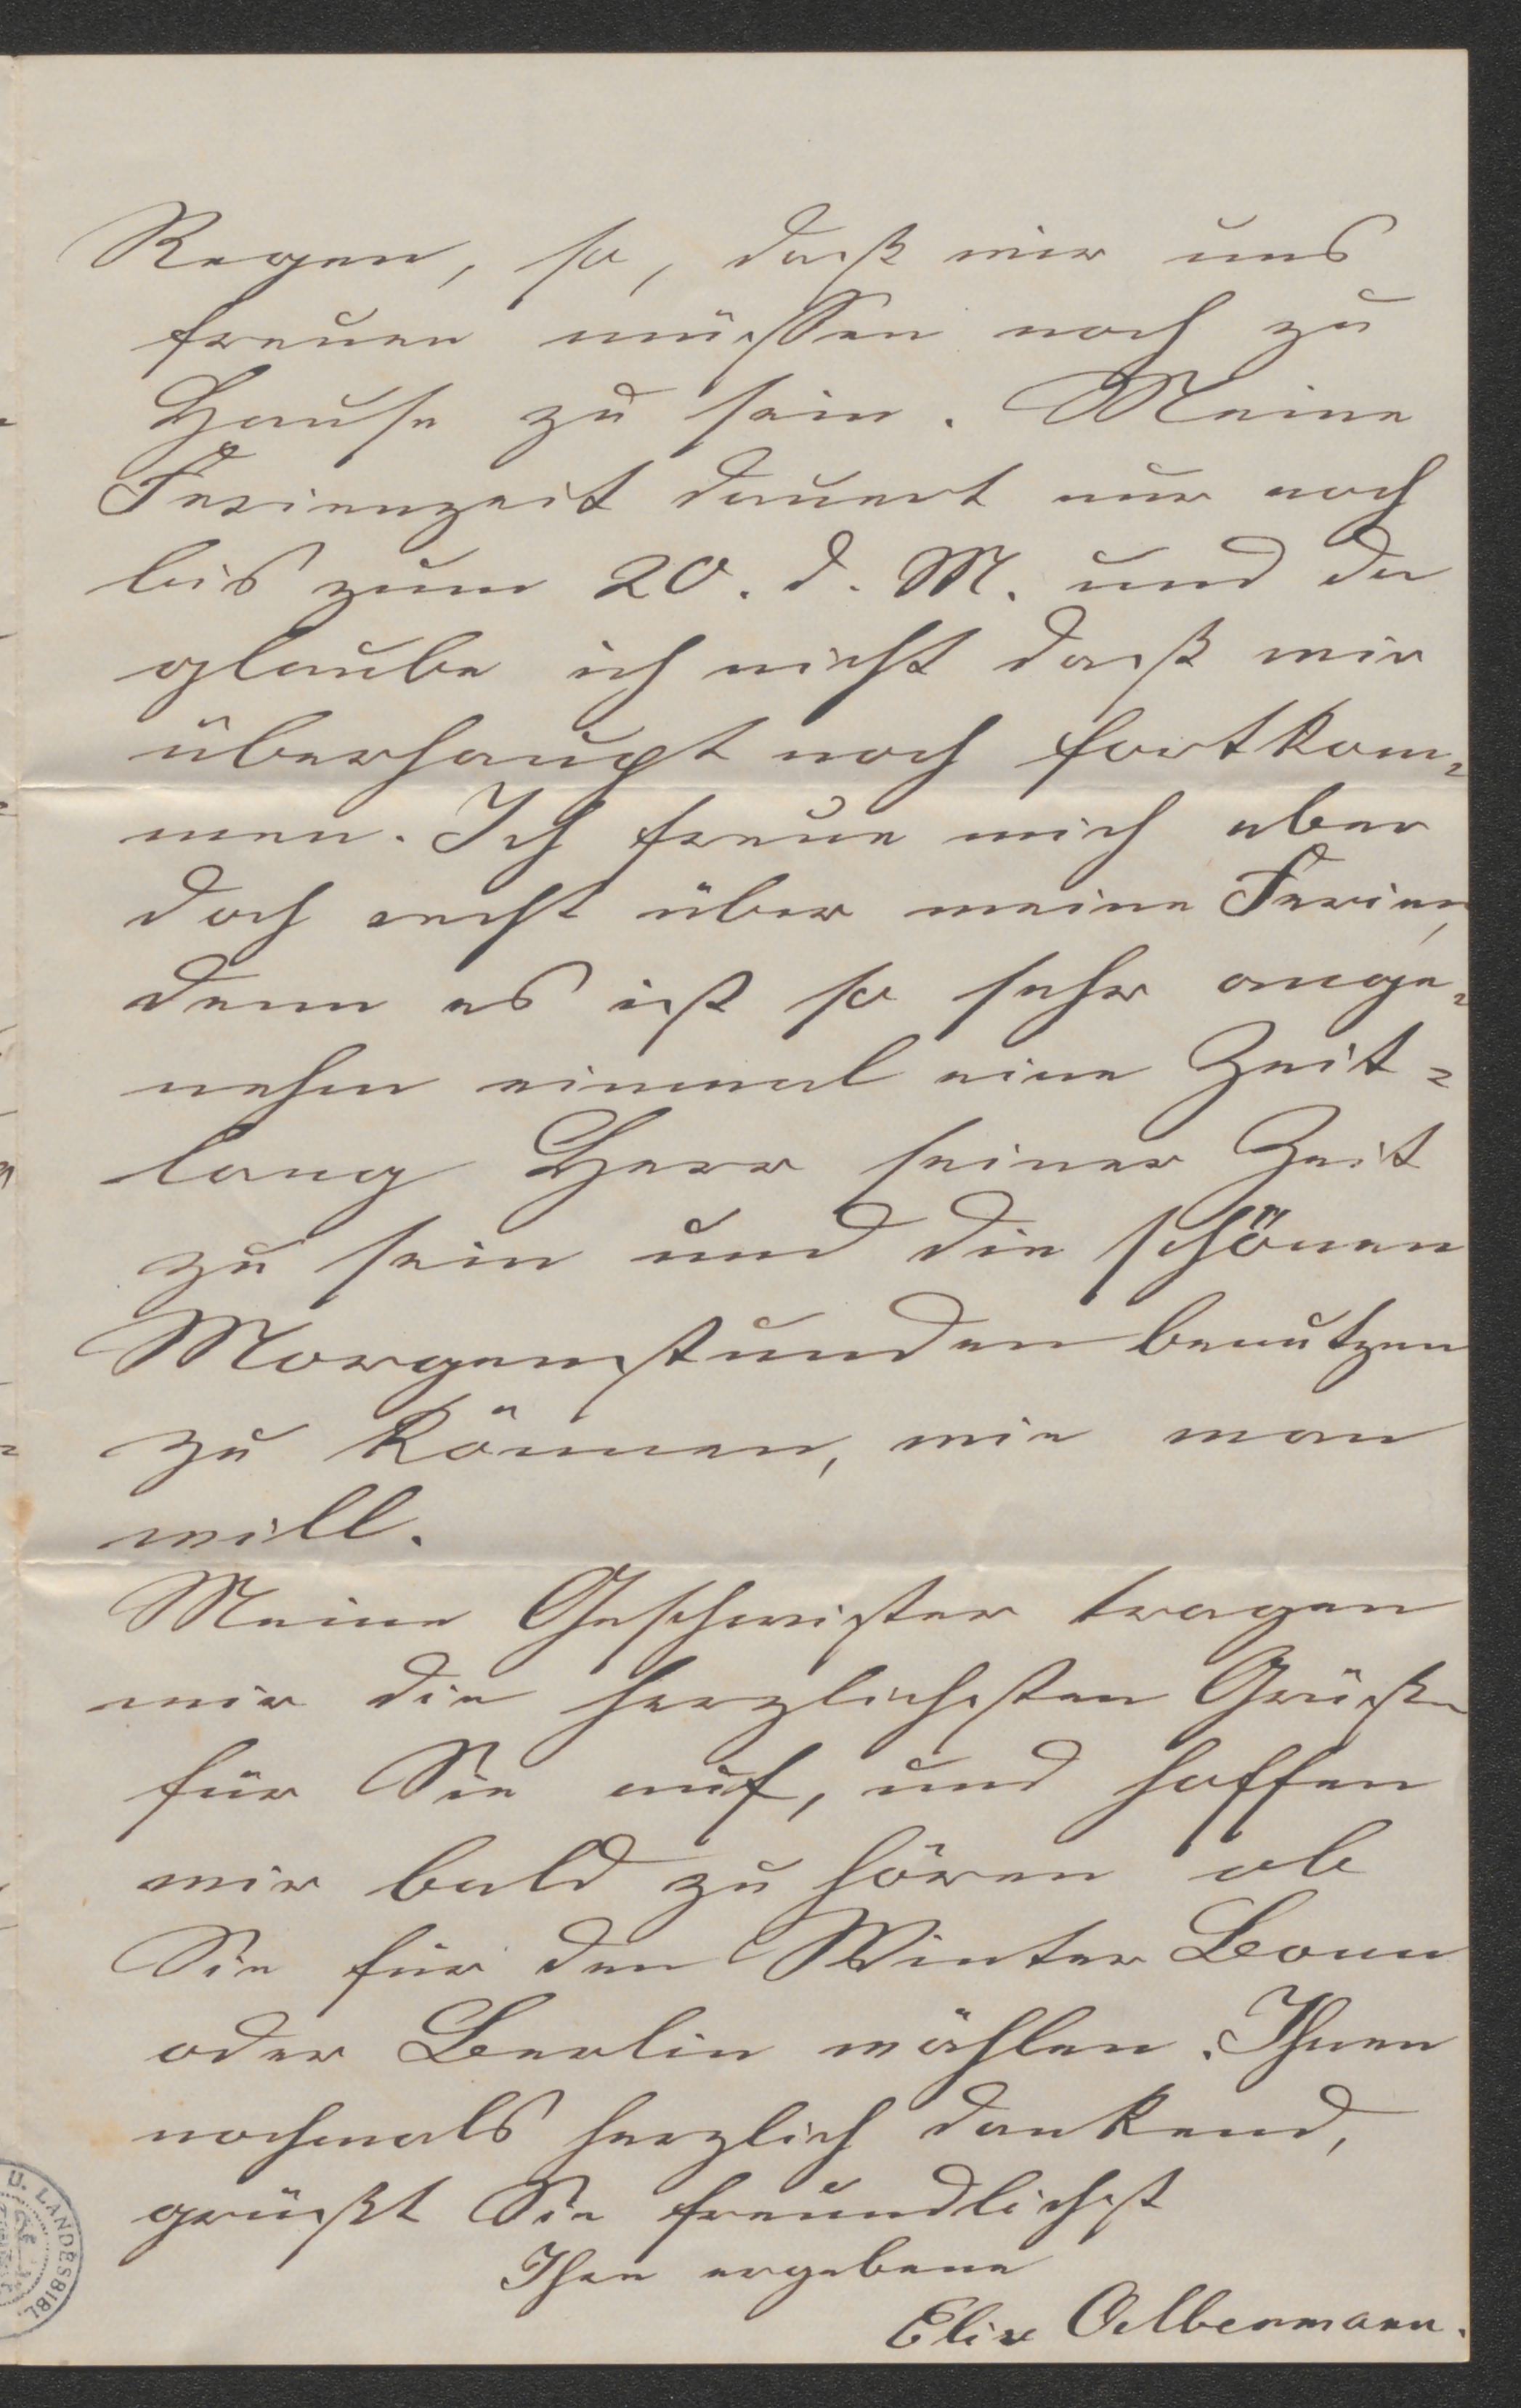 Regen, so, daß wir uns
freuen müssen noch zu
Hause zu sein. Meine
Ferienzeit dauert nur noch
bis zum 20. d. M. und da
glaube ich nicht daß wir
überhaupt noch fortkom=
men. Ich freue mich aber
doch recht über meine Ferien,
denn es ist so sehr ange=
nehm einmal eine Zeit=
lang Herr seiner Zeit
zu sein und die schönen
Morgenstunden benutzen
zu können, wie man
will.
Meine Geschwister tragen
mir die herzlichsten Grüße
für Sie auf, und hoffen
wir bald zu hören ob
Sie für den Winter Bonn
oder Berlin wählen. Ihnen
nochmals herzlich dankend,
grüßt Sie freundlichst
Ihre ergebene
Elise Oelbermann.
U. LANDESBIBL.